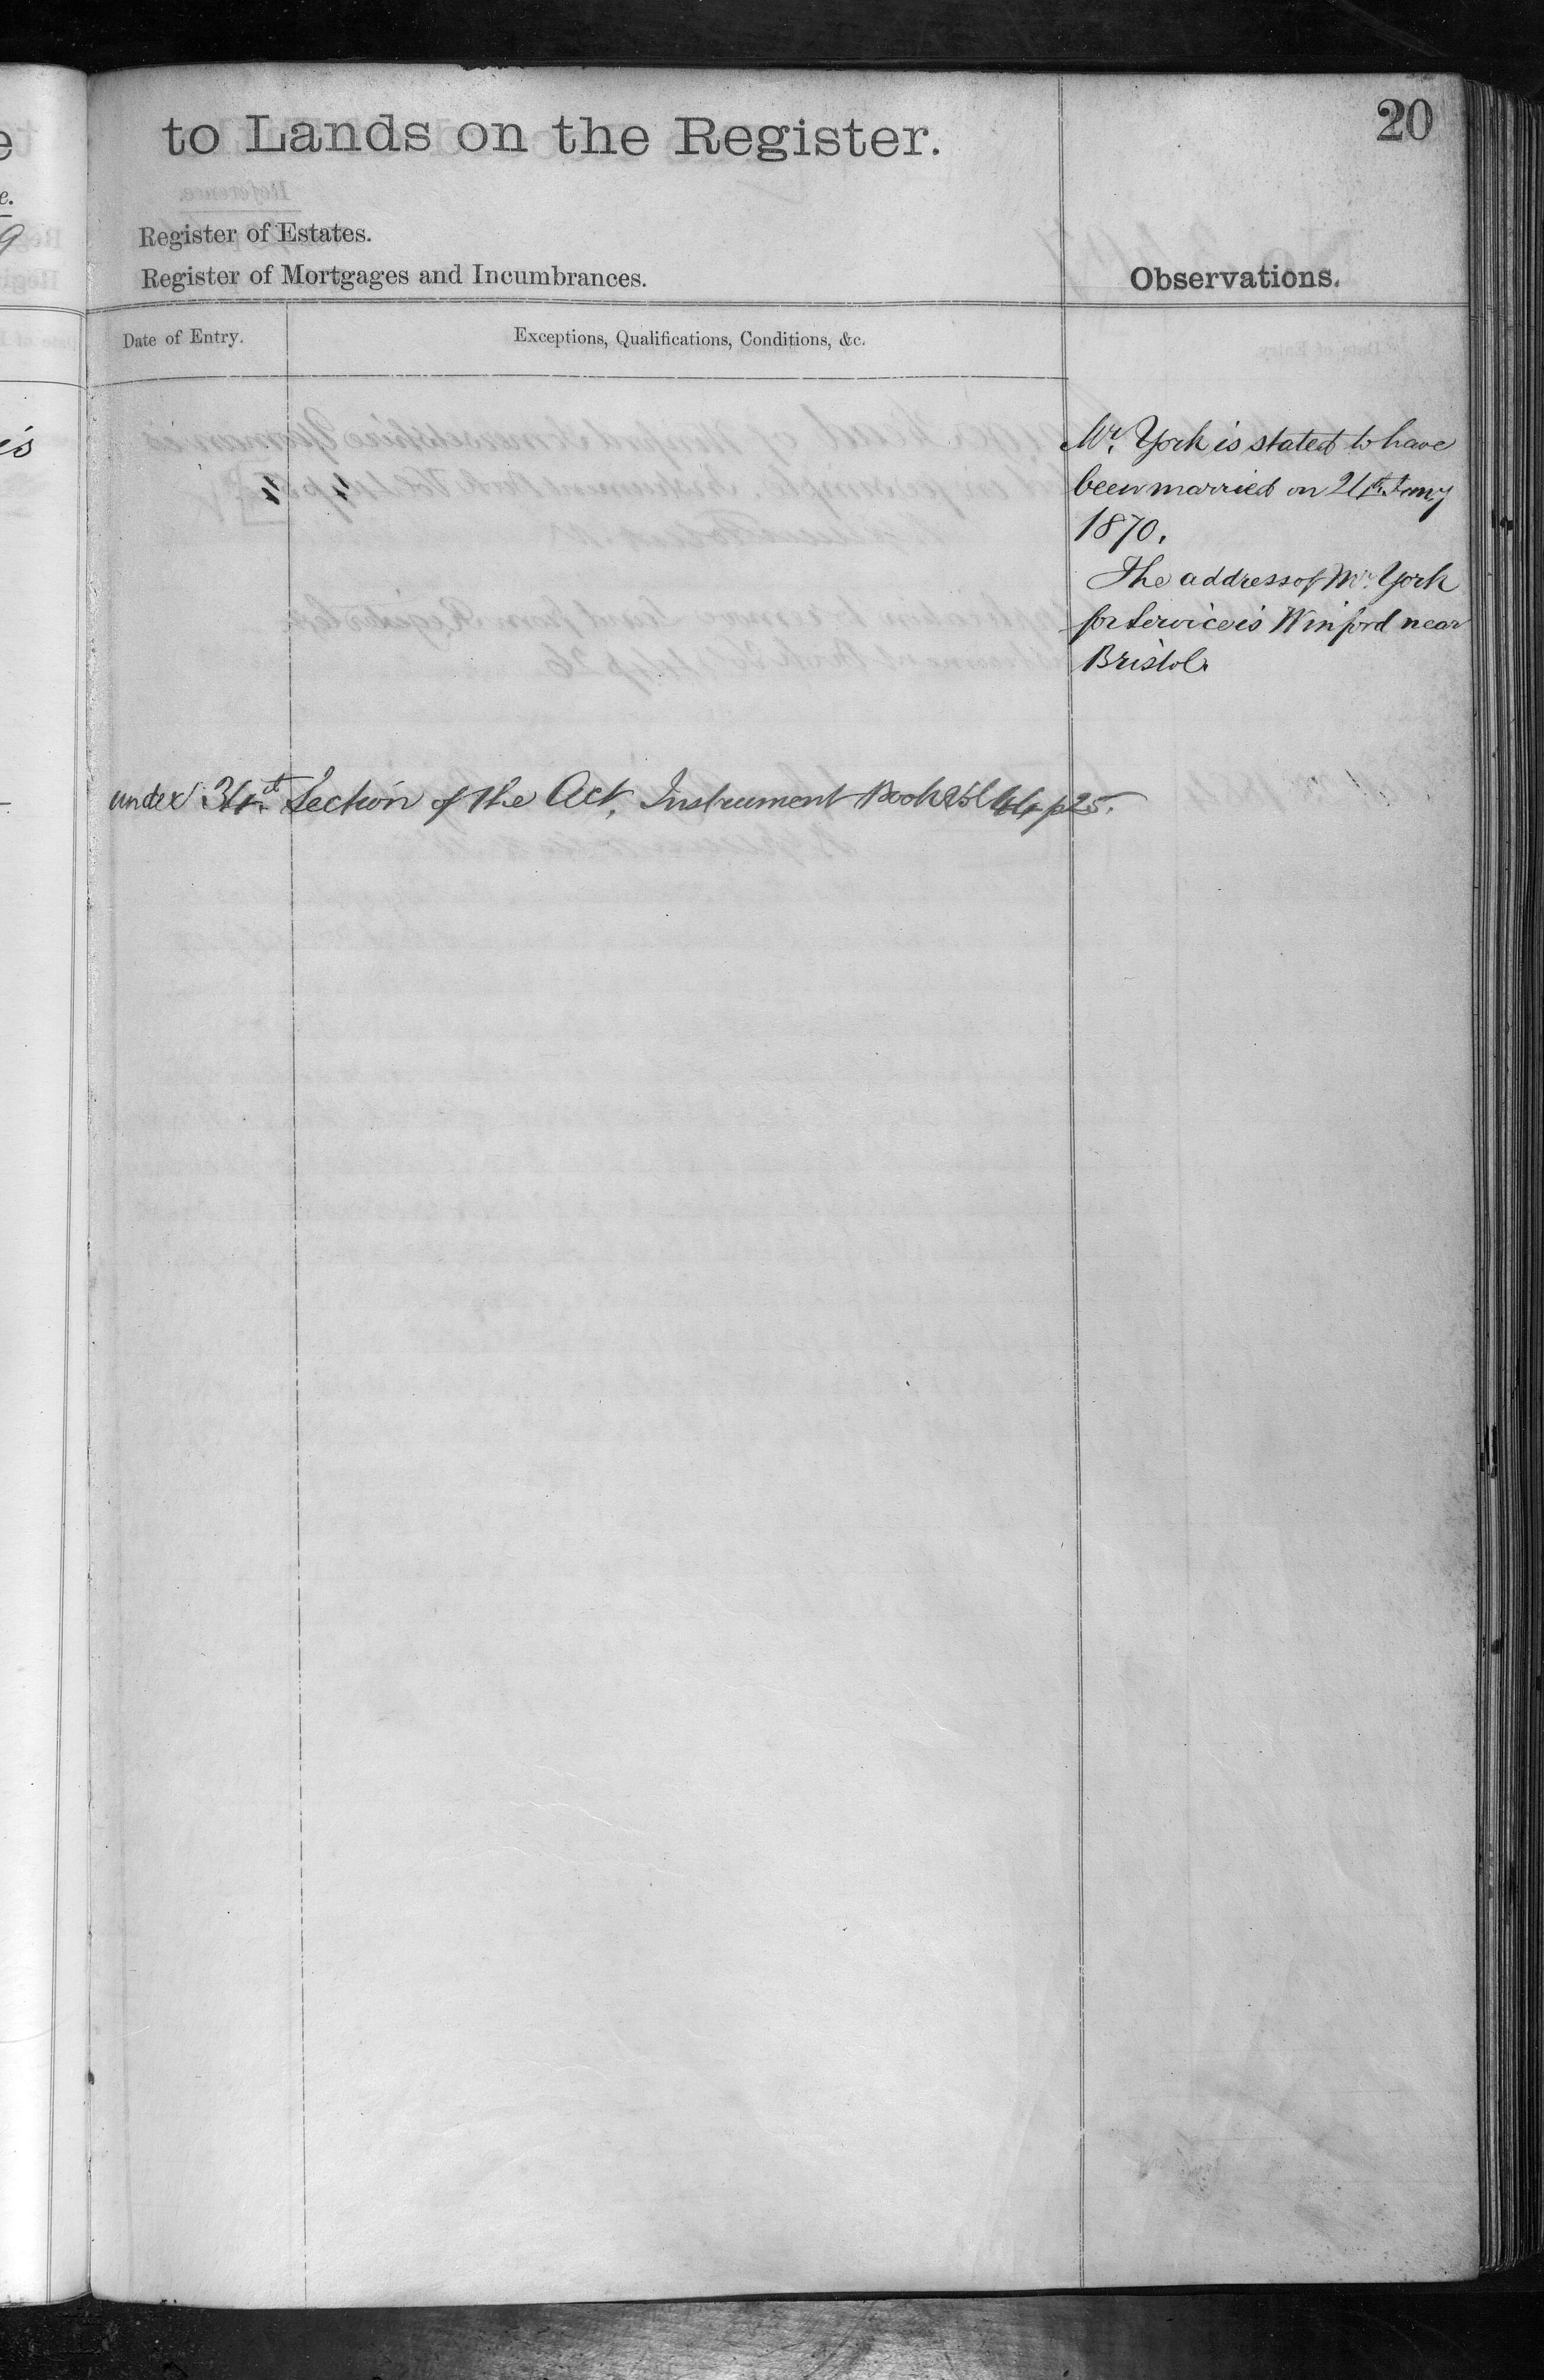 to Lands on the Register.
20
Register of Estates.
Register of Mortgages and Incumbrances.
Observations.
Date of Entry.
Exceptions, Qualifications, Conditions, &c.
Mr. York is stated to have
been married on 21st Jany
1870.
The address of Mr. York
for Service is Winford near
Bristol.
under 34th Section of the Act, Instrument Book Vol 44 p 25.